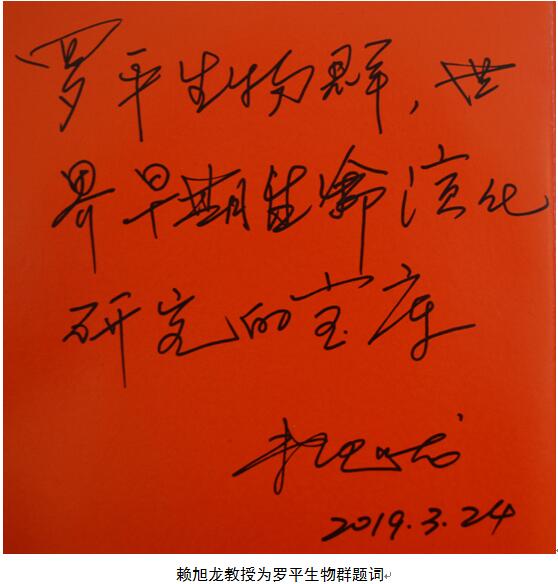 罗平生物群，世
界早期生命演化
研究的宝库
赖旭龙
2019.3.24
赖旭龙教授为罗平生物群题词